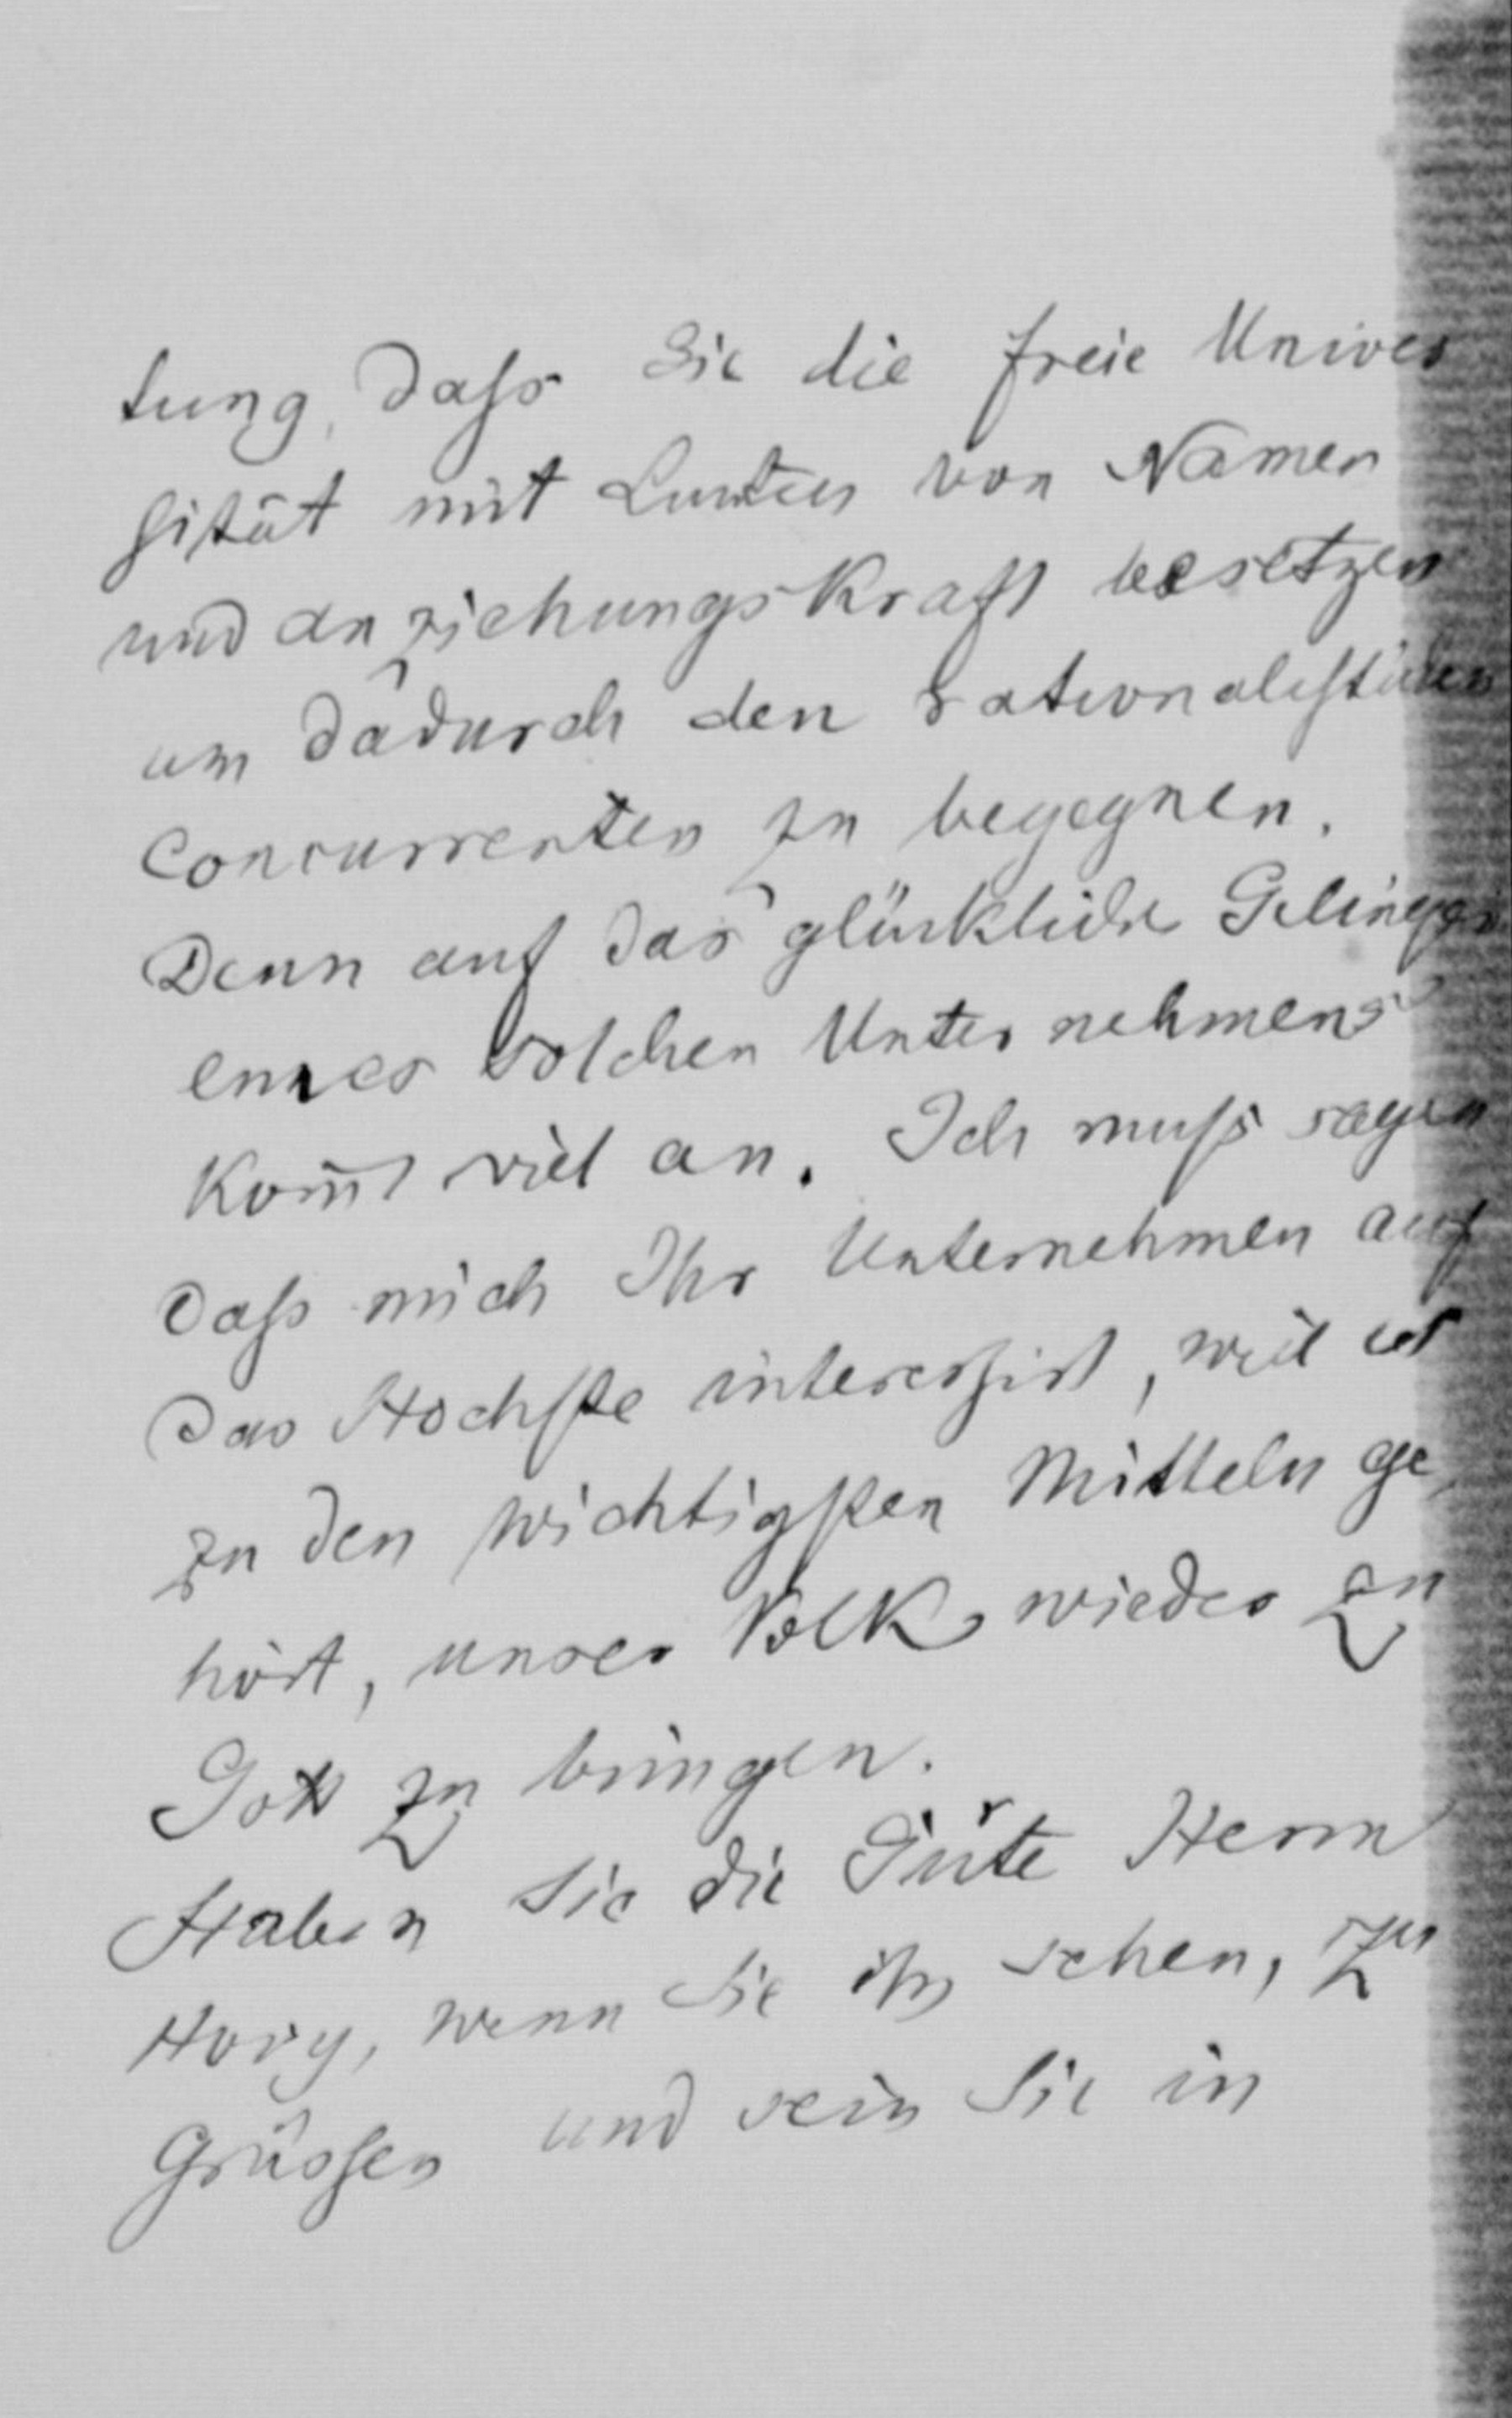 tung, dass Sie die freie Univer
sität mit Leuten von Namen
und Anziehungskraft besetzen
um dadurch den rationalistischen
Concurrenten zu begegnen.
Denn auf das glückliche Gelingen
eines solchen Unternehmens
kom̄t viel an. Ich muss sagen
dass mich Ihr Unternehmen auf
das Hochste interessirt, weil es
zu den wichtigsten Mitteln ge
hört, unser Volk wieder zu
Gott zu bringen.
Haben Sie die Güte Herrn
wenn Sie ihn sehen, zu
Grüssen und sein Sie in